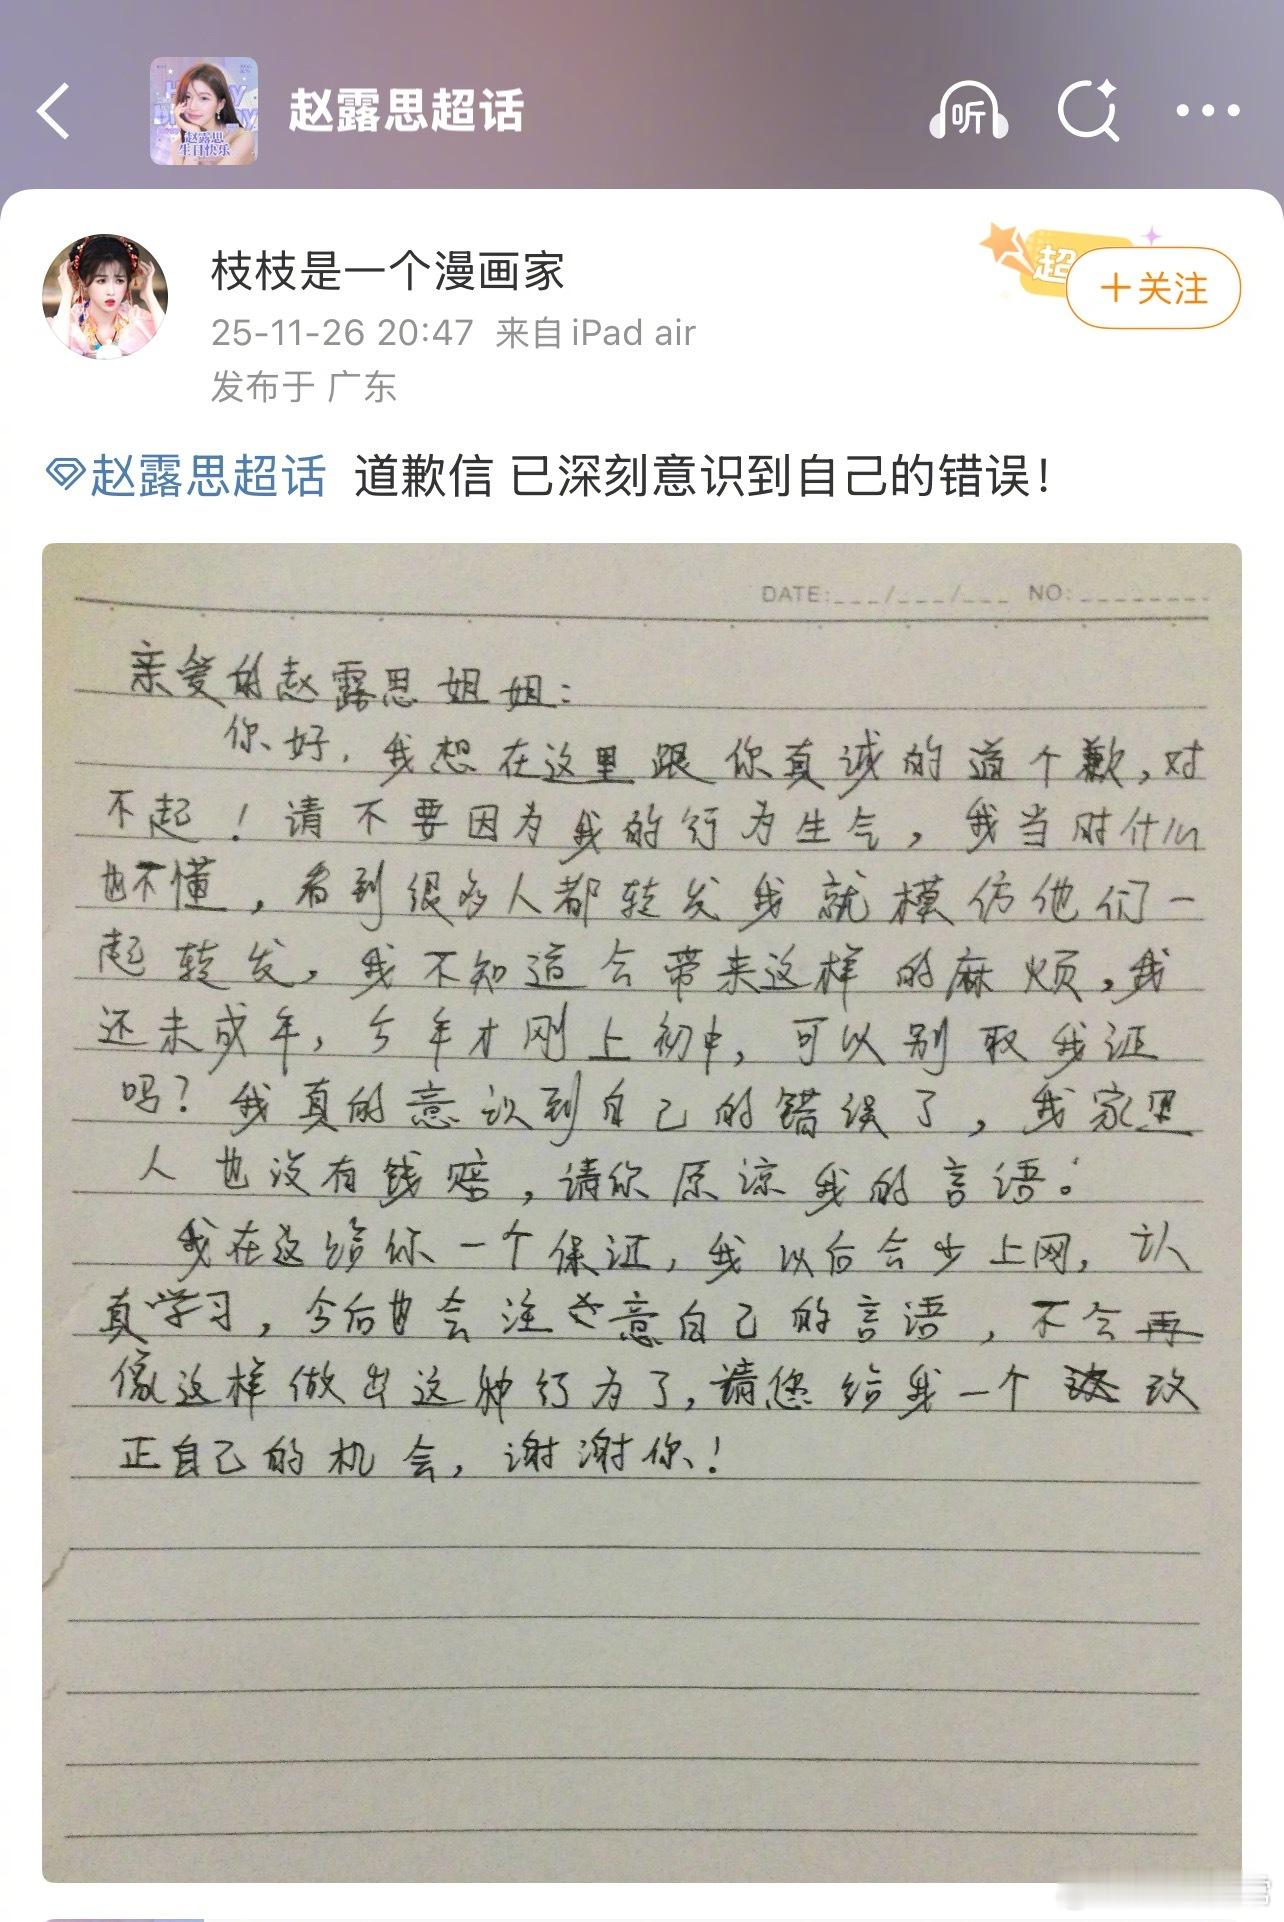 赵露思超话
听
赵露思
生日快乐
枝枝是一个漫画家
超
+关注
25-11-26 20:47 来自 iPad air
发布于 广东
赵露思超话 道歉信 已深刻意识到自己的错误！
DATE:___/___/___ NO:________
亲爱的赵露思姐姐：
你好，我想在这里跟你真诚的道个歉，对
不起！请不要因为我的行为生气，我当时什么
也不懂，看到很多人都转发我就模仿他们一
起转发，我不知道会带来这样的麻烦，我
还未成年，今年才刚上初中，可以别取我证
吗？我真的意识到自己的错误了，我家里
人也没有钱赔，请你原谅我的言语。
我在这给你一个保证，我以后会少上网，认
真学习，今后也会注意自己的言语，不会再
像这样做出这种行为了，请您给我一个改
正自己的机会，谢谢你！